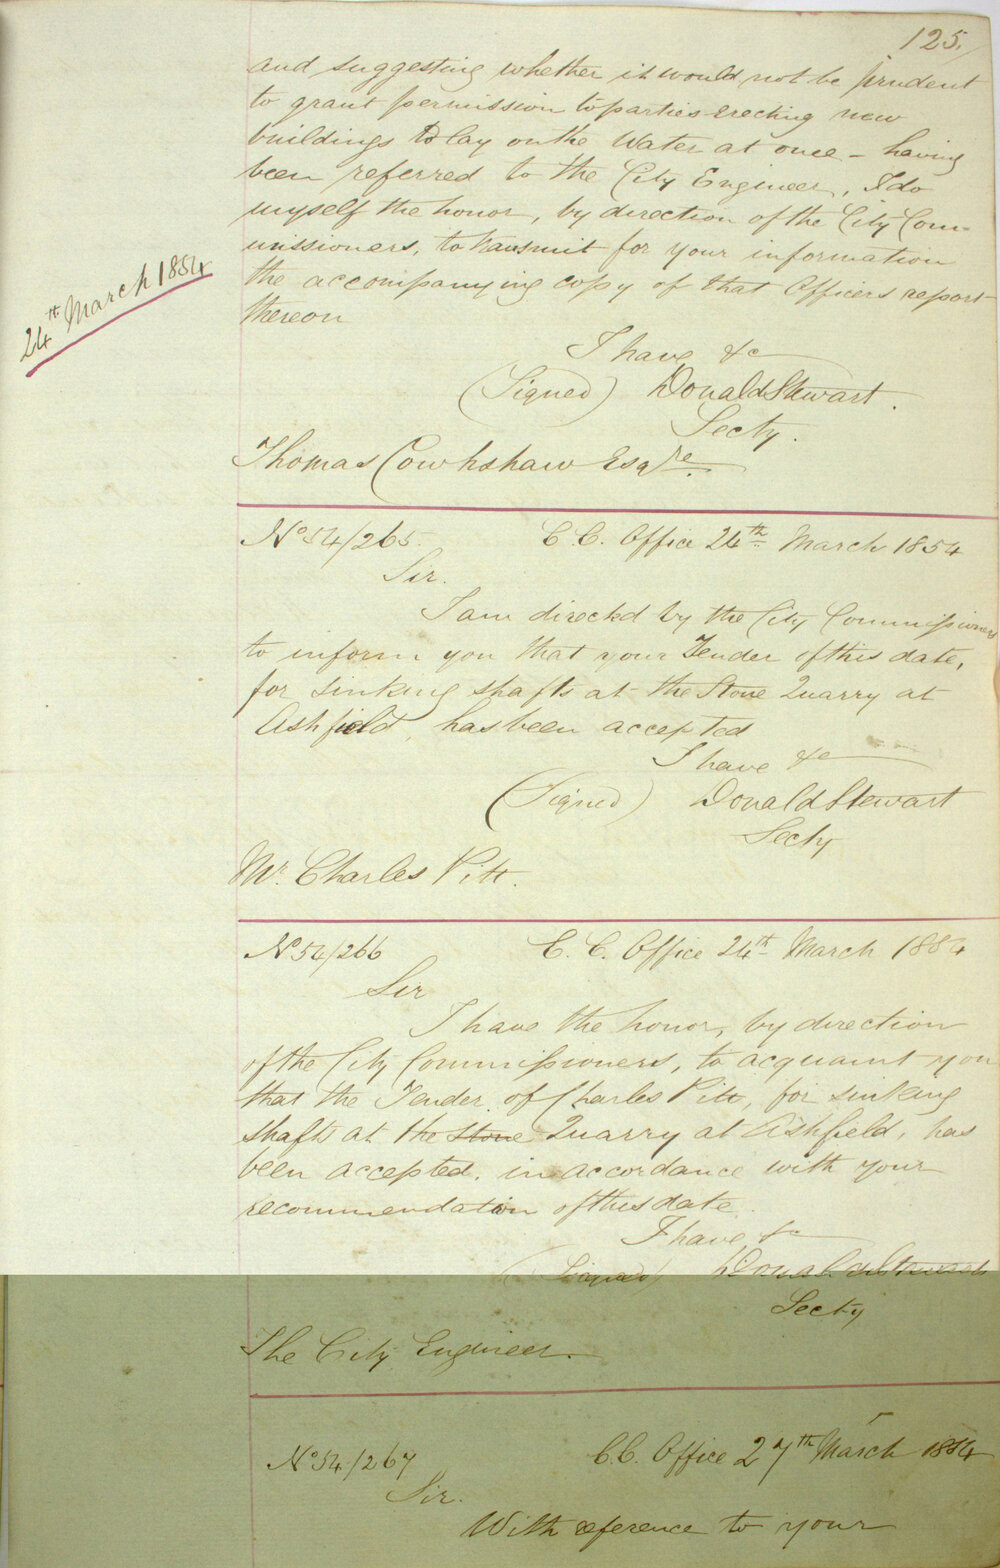 125.
and suggesting whether it would not be prudent
to grant permission to parties erecting new
buildings to lay on the Water at once - having
been referred to the City Engineer, I do
myself the honor, by direction of the City Com-
missioners, to transmit for your information
the accompanying copy of that Officers report
thereon
24th March 1854
I have &c
(Signed) Donald Stewart.
Secty.
Thomas Cowhshaw Esqre
No 54/265. C.C. Office 24th March 1854
Sir.
I am directed by the City Commissioners
to inform you that your Tender of this date,
for sinking shafts at the Stone Quarry at
Ashfield, has been accepted
I have &c
(Signed) Donald Stewart
Secty
Mr. Charles Pitt.
No 54/266 C.C. Office 24th March 1854
Sir
I have the honor, by direction
of the City Commissioners, to acquaint you
that the Tender of Charles Pitt, for sinking
shafts at the Stone Quarry at Ashfield, has
been accepted, in accordance with your
recommendation of this date.
I have &c
(Signed) Donald Stewart
Secty
The City Engineer.
No 54/267 C.C. Office 27th March 1854
Sir.
With reference to your